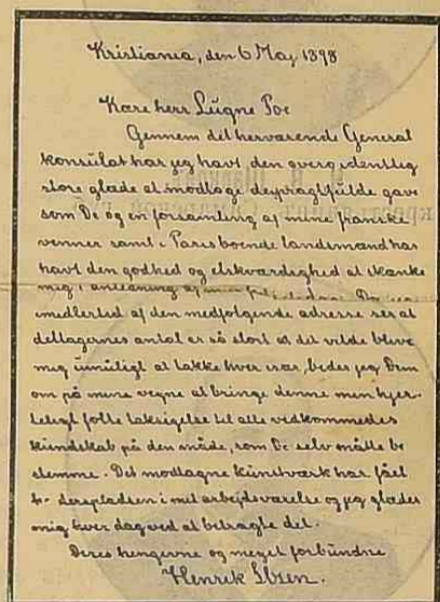 Kristiania, den 6 Maj 1898
Kære herr Lúgne Poe
Gennem det herværende General
konsulat har jeg havt den overordentlig
store glæde at modtage de pragtfulde gave
som De og en forsamling af mine franske
venner samt i Paris boende landsmænd har
havt den godhed og elskværdighed at skænke
mig i anledning af min fødselsdag. Da jeg
imedlertid af den medfølgende adresse ser at
deltagernes antal er så stort at det vilde blive
mig umuligt at takke hver især, beder jeg Dem
om på mine vegne at bringe denne min hjer-
teligt følte taksigelse til alle vedkommendes
kundskab på den måde, som De selv måtte be
stemme. Det modtagne kunstværk har fået
hæderspladsen i mit arbejdsværelse og jeg glæder
mig hver dag ved at betragte det.
Deres hengivne og meget forbundne
Henrik Ibsen.